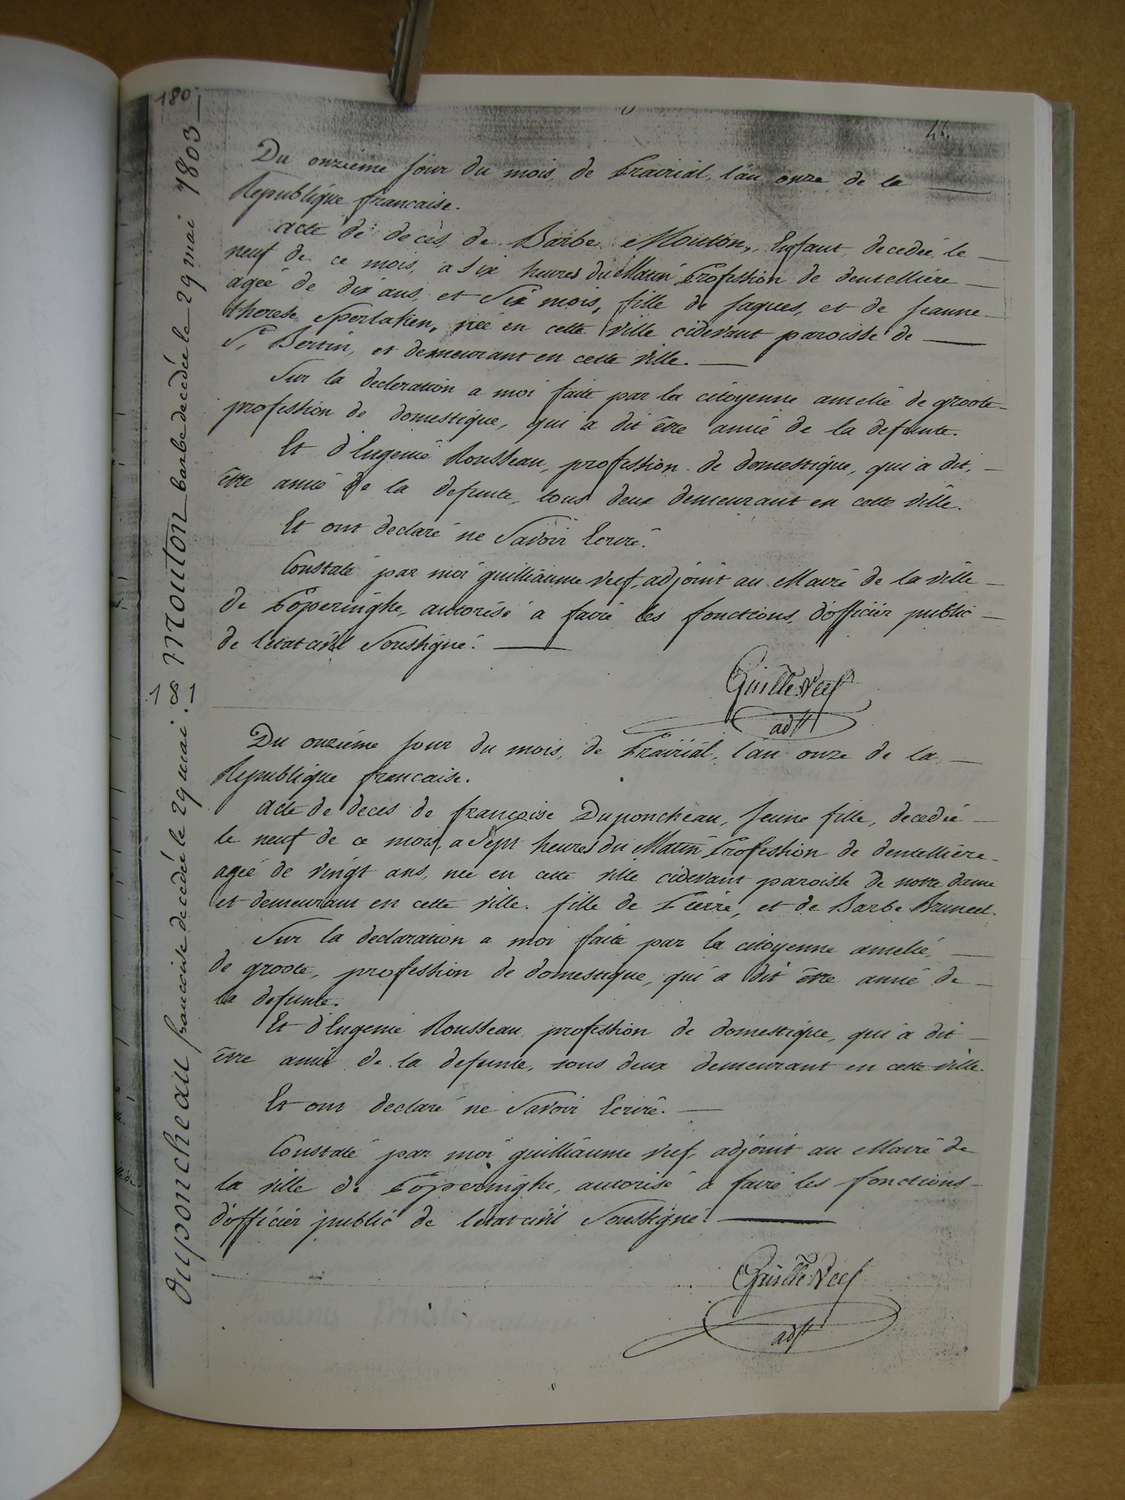 180
Mouton barbe decedée le 29 mai 1803
Du onziéme jour du mois de Prairial, l'an onze de la
République francaise.
Acte de decès de Barbe Mouton, Enfant, decedée le
neuf de ce mois, a Six heures du Matin Profession de dentelliere
agée de dix ans, et Six mois, fille de jaques, et de jeanne
therese Sperlaken, née en cette ville cidevant paroisse de
St Bertin, et demeurant en cette ville.
Sur la decleration a moi faite par la citoyenne amelie de groote
profession de domestique, qui a dit être amie de la defunte.
Et d'Eugenie Rousseau, profession de domestique, qui a dit,
être amie de la defunte, tous deux demeurant en cette ville.
Et ont declaré ne Savoir Ecrire.
Constaté par moi guilliaume neef, adjoint au Maire de la ville
de Poperinghe, autorisé a faire les fonctions, d'officier public
de letat civil Soussigné.
Guille Neef
adjt
181
duponcheau francoise decedée le 29 mai
Du onziéme jour du mois, de Prairial, l'an onze de la
République francaise.
Acte de deces de françoise Duponcheau, jeune fille, decedée
le neuf de ce mois, a Sept heures du Matin Profession de dentelliere
agée de vingt ans, née en cette ville cidevant paroisse de notre dame
et demeurant en cette ville. fille de Pierre, et de Barbe Bruneel.
Sur la declaration a moi faite par la citoyenne amelie
de groote, profession de domestique, qui a dit être amie de
la defunte.
Et d'Eugenie Rousseau profession de domestique, qui a dit
être amie de la defunte, tous deux demeurant en cette ville.
Et ont declaré ne Savoir Ecrire.
Constaté par moi guilliaume neef, adjoint au Maire de
la ville de Poperinghe, autorisé a faire les fonctions
d'officier public de letat civil Soussigné.
Guille Neef
adjt